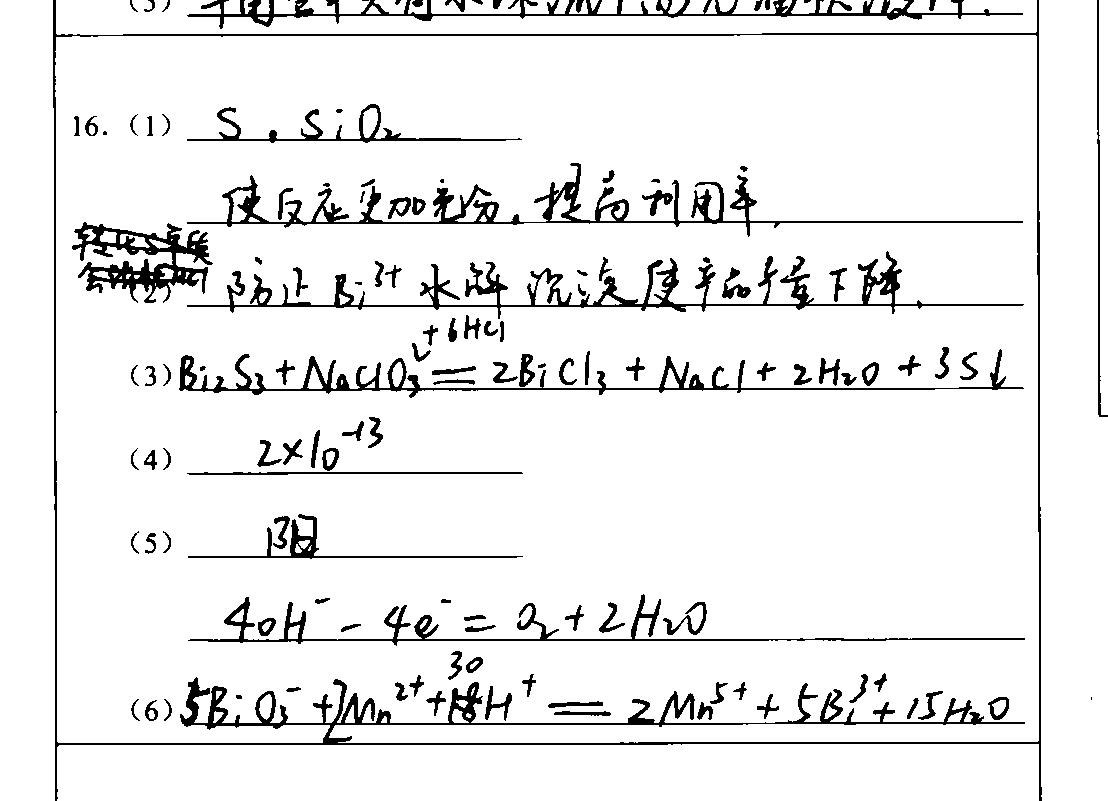 16.（1） S . SiO₂
使反应更加充分, 提高利用率.
（2） 防止 Bi³⁺ 水解沉淀使产品产量下降.
+6HCl
（3）Bi₂S₃ + NaClO₃ = 2BiCl₃ + NaCl + 2H₂O + 3S↓
（4） 2×10⁻¹³
（5） 阳
4OH⁻ - 4e⁻ = O₂ + 2H₂O
30
（6）5BiO₃⁻ + 2Mn²⁺ + H⁺ = 2Mn⁵⁺ + 5Bi³⁺ + 15H₂O